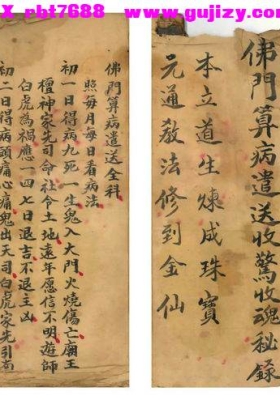 X rbt7688   www.gujizy.com
佛門算病遣送收驚收魂秘錄
本立道生煉成珠寶
元通教法修到金仙
佛門算病遣送全科
照每月每日看病法
初一日得病九死一生鬼入大門火燒傷亡廟王
檀神家先司命社令土地遠年愿信不明遊師
白虎為禍應一四七日退吉不退主凶
初二日得病頭痛心痛鬼出天司白虎家先引